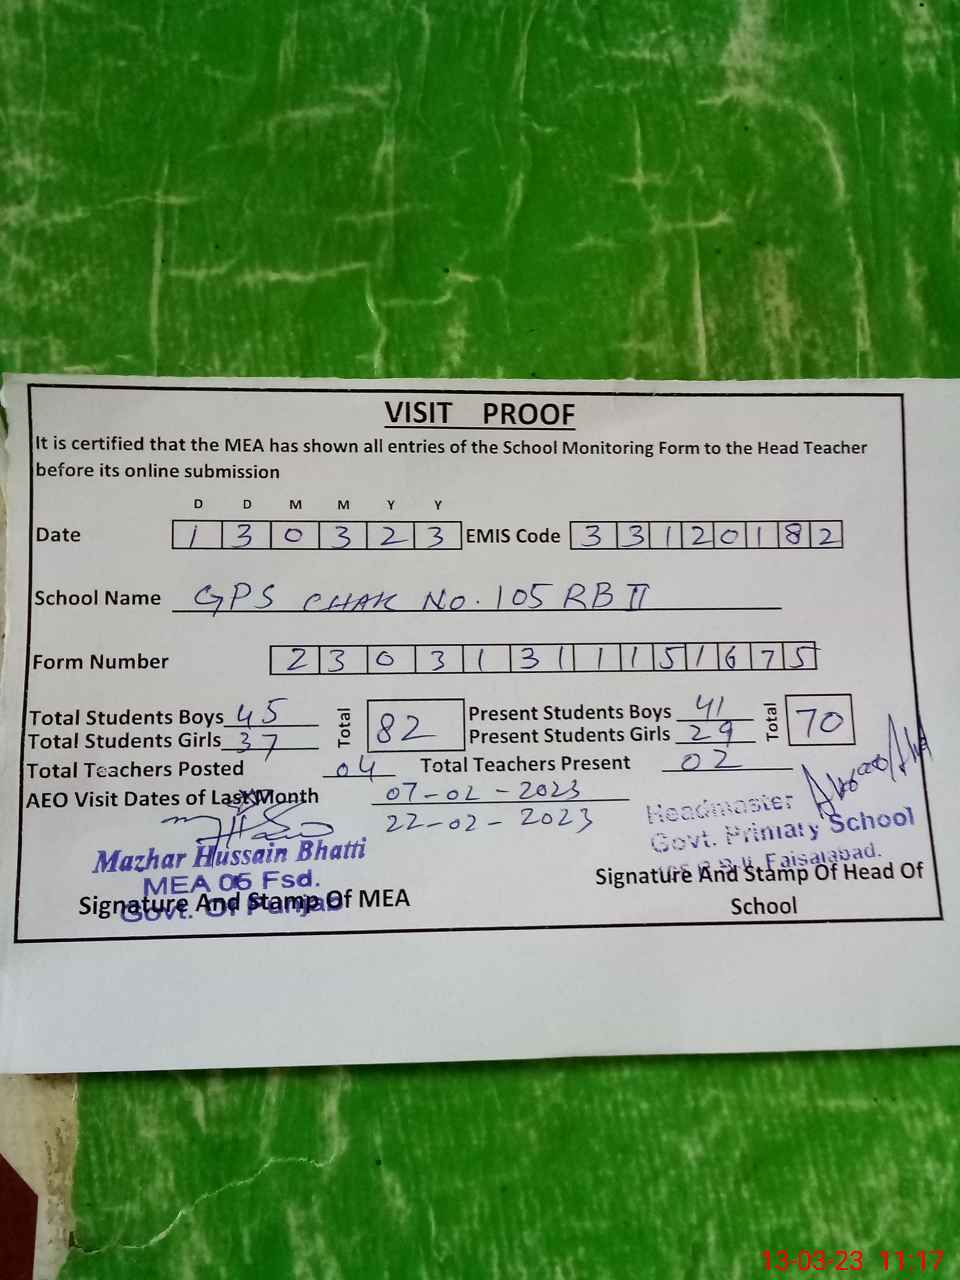 VISIT PROOF
It is certified that the MEA has shown all entries of the School Monitoring Form to the Head Teacher
before its online submission
D D M M Y Y
Date 1 3 0 3 2 3 EMIS Code 3 3 1 2 0 1 8 2
School Name GPS CHAK No. 105 RB II
Form Number 2 3 0 3 1 3 1 1 1 5 1 6 7 5
Total Students Boys 45 Total 82 Present Students Boys 41 Total 70
Total Students Girls 37 Present Students Girls 29
Total Teachers Posted 04 Total Teachers Present 02
AEO Visit Dates of Last Month 07-02-2023
22-02-2023
Headmaster
Govt. Primary School
Faisalabad.
Mazhar Hussain Bhatti
MEA 05 Fsd.
Govt. Of Punjab
Signature And Stamp Of MEA
Signature And Stamp Of Head Of
School
13-03-23 11:17